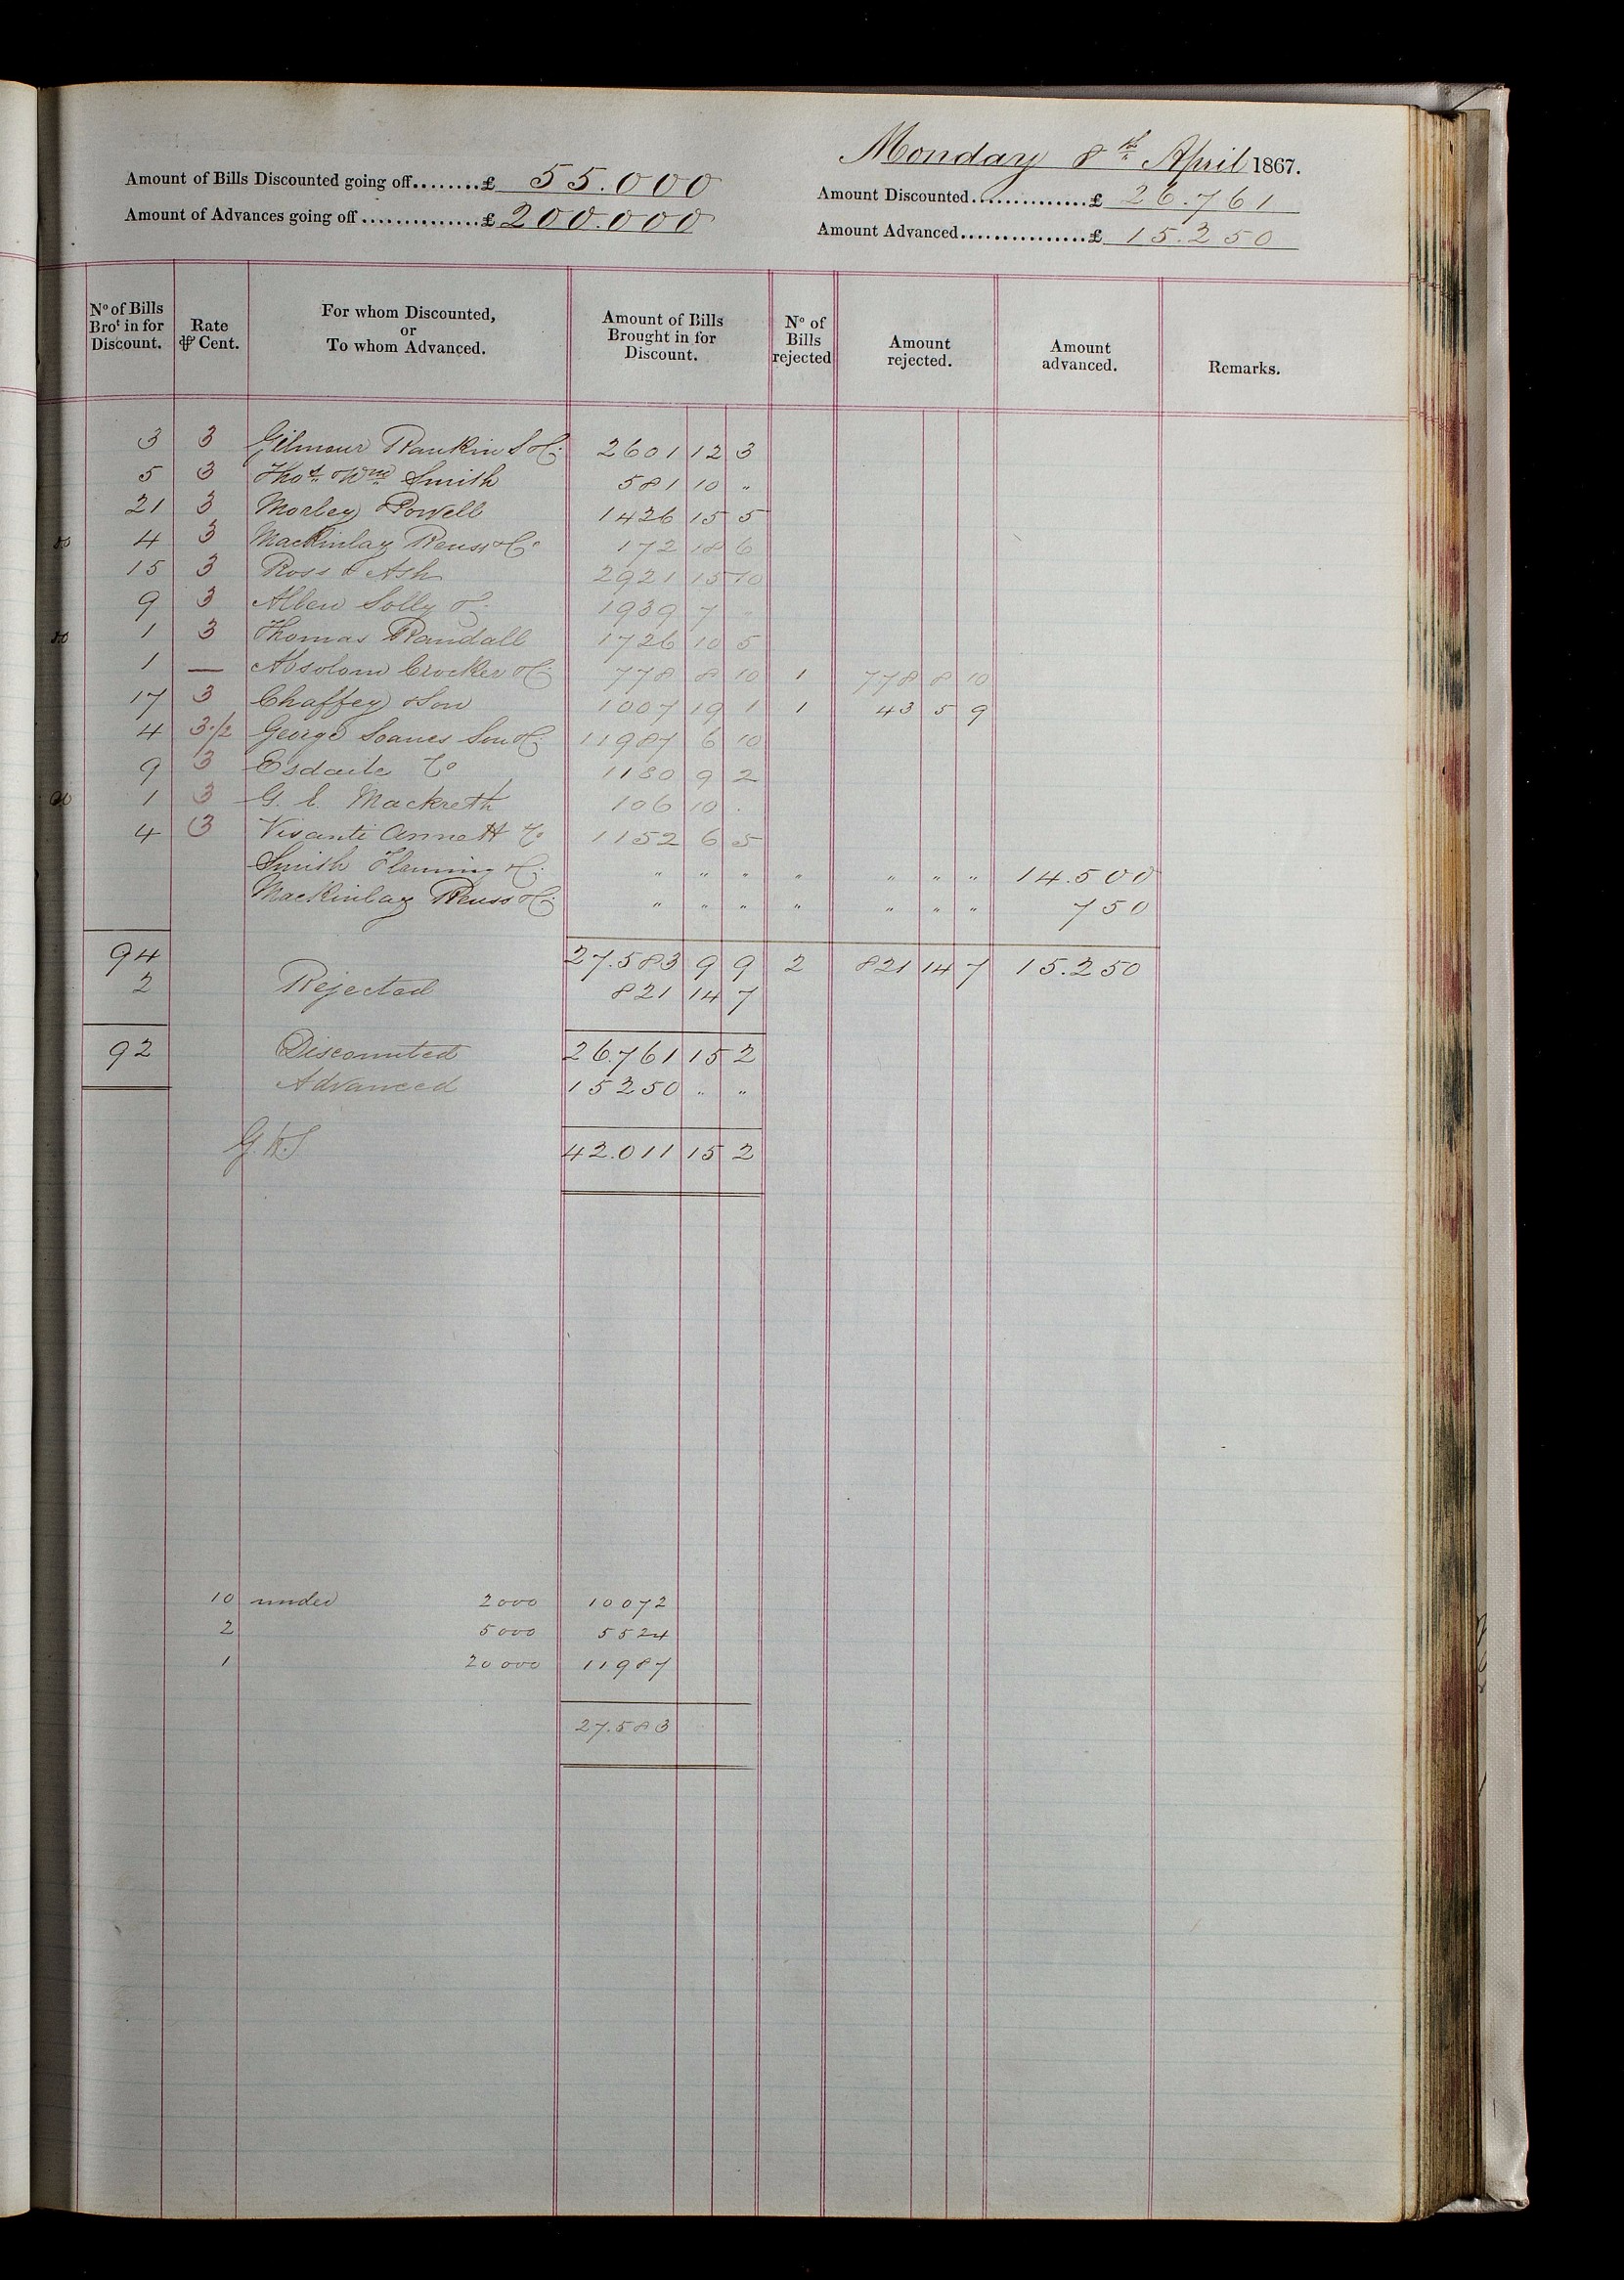 Monday 8th April 1867.
Amount of Bills Discounted going off........£ 55.000
Amount Discounted..............£ 26.761
Amount of Advances going off..............£ 200.000
Amount Advanced...............£ 15.250
No of Bills Brot in for Discount. Rate ⅌ Cent. For whom Discounted, or To whom Advanced. Amount of Bills Brought in for Discount. No of Bills rejected Amount rejected. Amount advanced. Remarks.
3 3 Gilmour Rankin S & Co 2601 12 3
5 3 Thos & Wm Smith 581 10 "
21 3 Morley & Powell 1426 15 5
4 3 Mackinlay Reuss & Co 172 18 6
15 3 Ross & Ash 2921 15 10
9 3 Alben Solly & Co 1939 7 "
1 3 Thomas Randall 1726 10 5
1 — Absolom Crocker & Co 778 8 10 1 778 8 10
17 3 Chaffey & Son 1007 19 1 1 43 5 9
4 3½ George Soanes Son & Co 11987 6 10
9 3 Esdaile & Co 1180 9 2
1 3 G. C. Mackreth 106 10 .
4 3 Visanti Annett & Co 1152 6 5
Smith Fleming & Co " " " " " " " 14.500
Mackinlay Reuss & Co " " " " " " " 750
94 27.583 9 9 2 821 14 7 15.250
2 Rejected 821 14 7
92 Discounted 26.761 15 2
Advanced 15250 " "
42.011 15 2
10 under 2000 10072
2 5000 5524
1 20000 11987
27.583